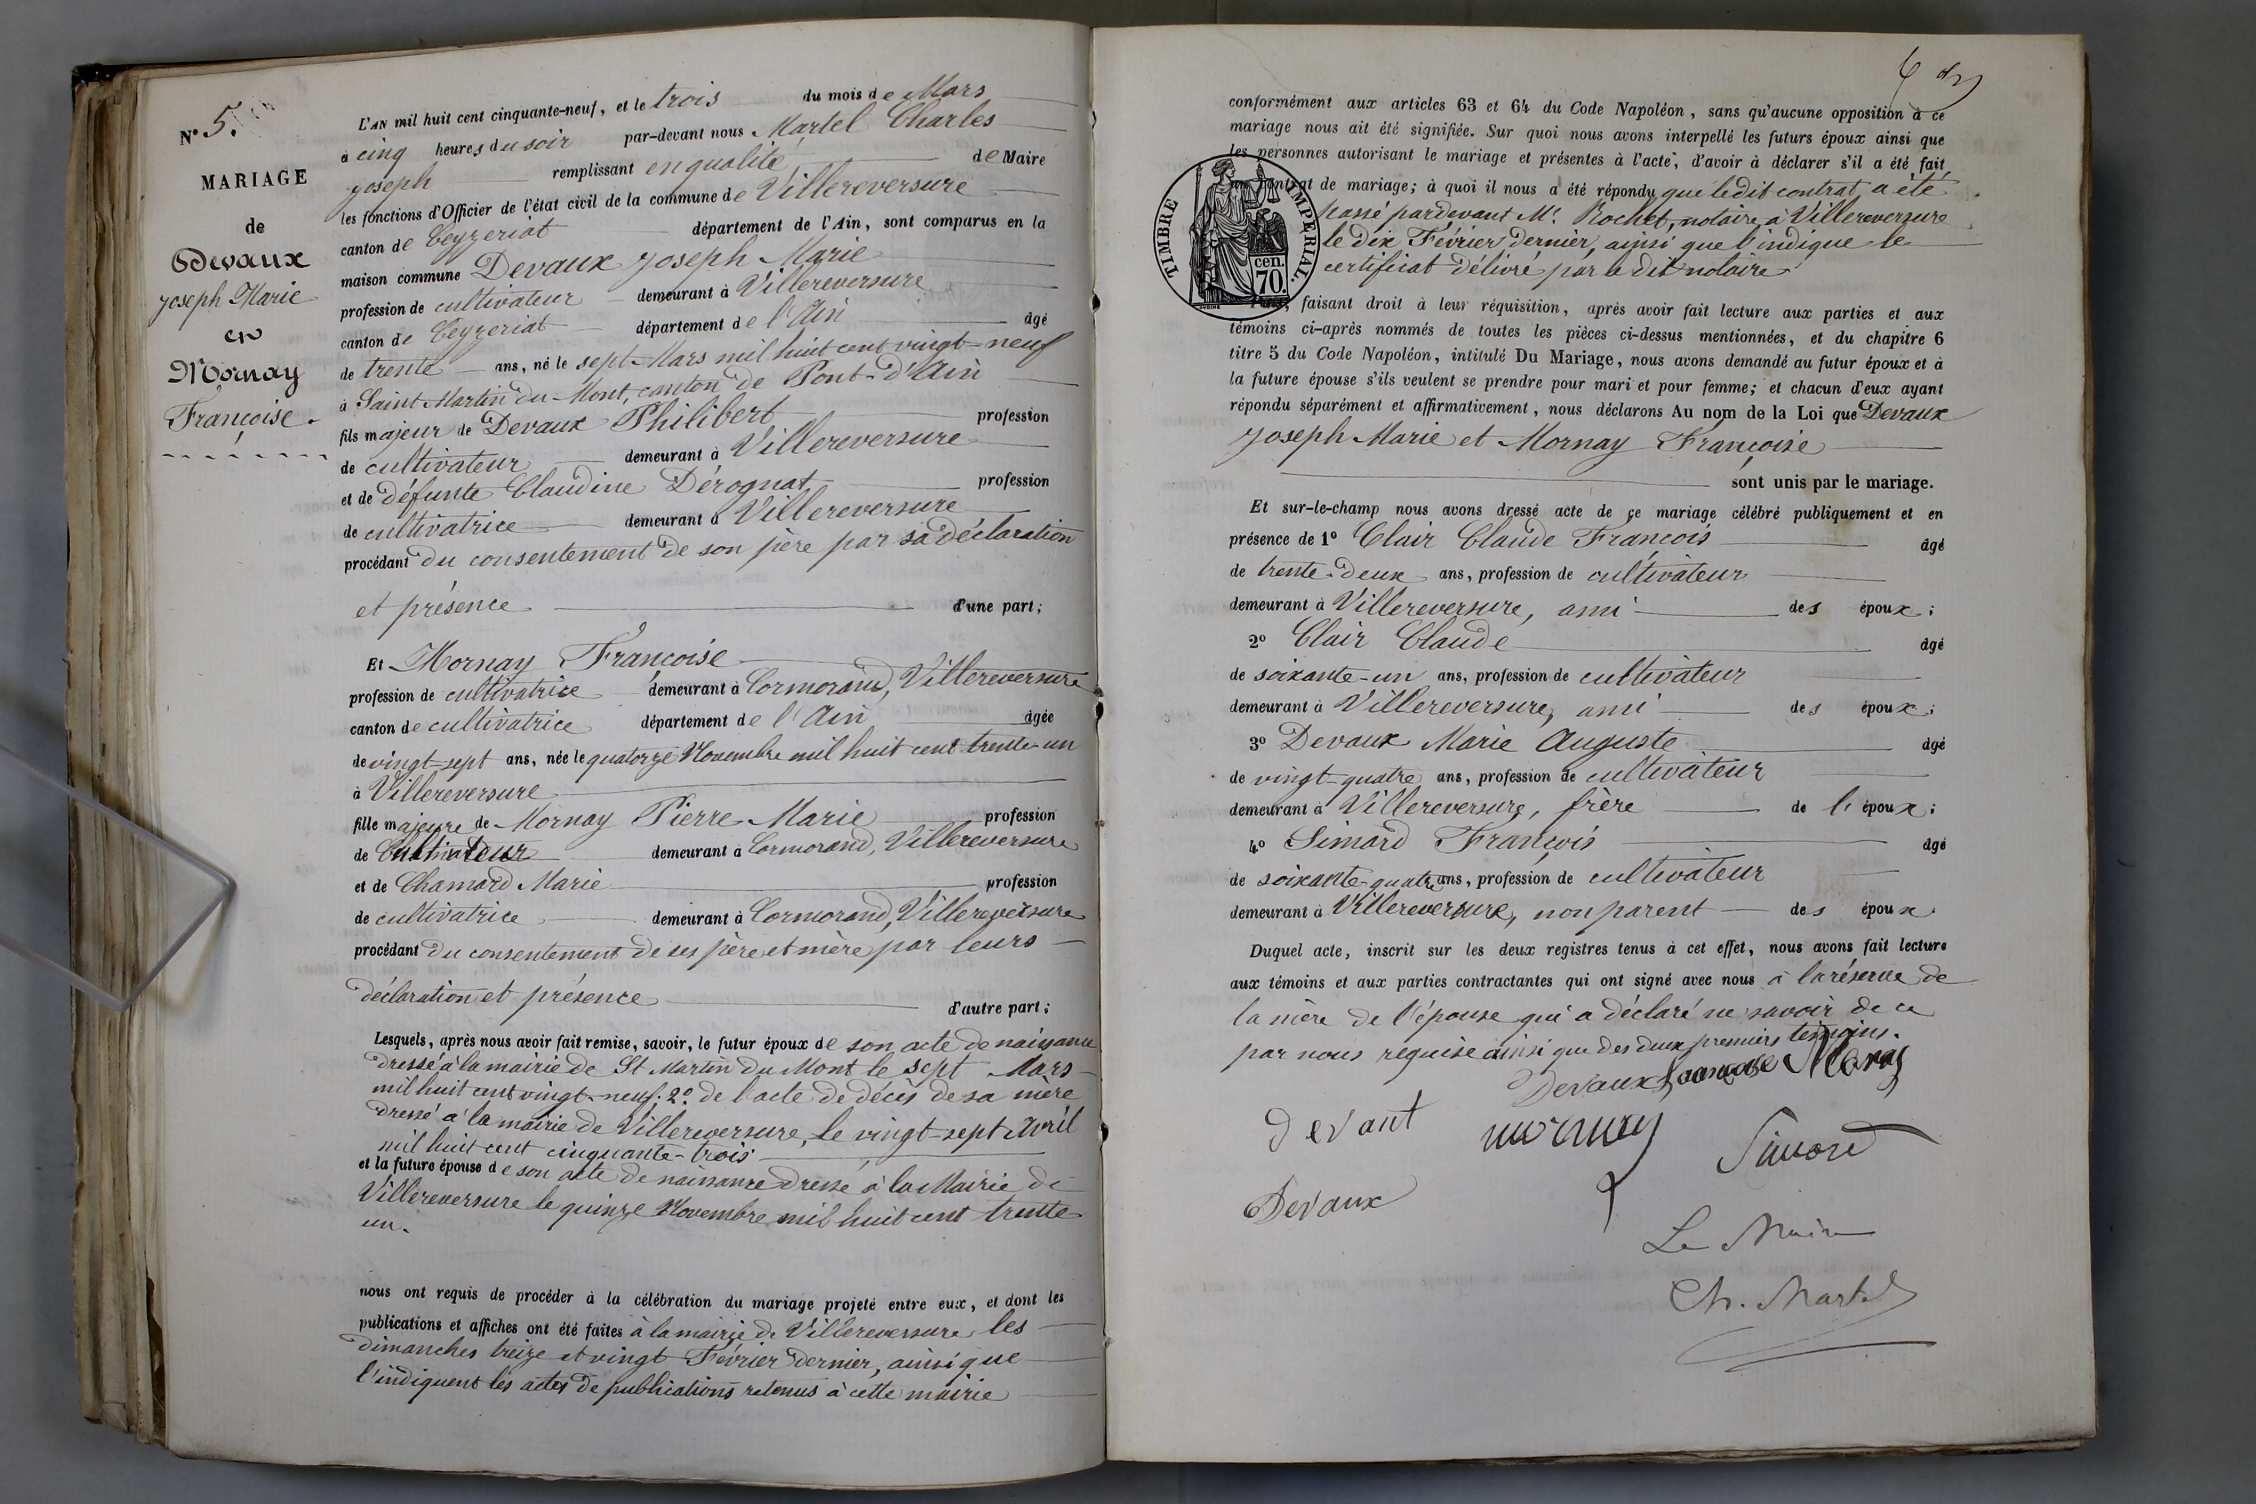 N° 5.
MARIAGE
de
Devaux
Joseph Marie
et
Mornay
Françoise.
L'AN mil huit cent cinquante-neuf, et le trois du mois de Mars
à cinq heures du soir par-devant nous Martel Charles
Joseph remplissant en qualité de Maire
les fonctions d'Officier de l'état civil de la commune de Villereversure
canton de Ceyzeriat département de l'Ain, sont comparus en la
maison commune Devaux Joseph Marie
profession de cultivateur demeurant à Villereversure
canton de Ceyzeriat département de l'Ain âgé
de trente ans, né le sept Mars mil huit cent vingt-neuf
à Saint Martin du Mont, canton de Pont-d'Ain
fils majeur de Devaux Philibert profession
de cultivateur demeurant à Villereversure
et de défunte Claudine Dérognat profession
de cultivatrice demeurant à Villereversure
procédant du consentement de son père par sa déclaration
et présence d'une part;
Et Mornay Françoise
profession de cultivatrice demeurant à Cormorand, Villereversure
canton de cultivatrice département de l'Ain âgée
de vingt-sept ans, née le quatorze Novembre mil huit cent trente-un
à Villereversure
fille majeure de Mornay Pierre Marie profession
de Cultivateur demeurant à Cormorand, Villereversure
et de Chamard Marie profession
de cultivatrice demeurant à Cormorand, Villereversure
procédant du consentement de ses père et mère par leurs
déclaration et présence d'autre part;
Lesquels, après nous avoir fait remise, savoir, le futur époux de son acte de naissance
dressé à la mairie de St Martin du Mont le sept Mars
mil huit cent vingt-neuf; 2° de l'acte de décès de sa mère
dressé à la mairie de Villereversure, le vingt-sept Avril
mil huit cent cinquante-trois
et la future épouse de son acte de naissance dressé à la Mairie de
Villereversure le quinze Novembre mil huit cent trente
un.
nous ont requis de procéder à la célébration du mariage projeté entre eux, et dont les
publications et affiches ont été faites à la mairie de Villereversure les
dimanches treize et vingt Février dernier, ainsi que
l'indiquent les actes de publications retenus à cette mairie
6
conformément aux articles 63 et 64 du Code Napoléon, sans qu'aucune opposition à ce
mariage nous ait été signifiée. Sur quoi nous avons interpellé les futurs époux ainsi que
les personnes autorisant le mariage et présentes à l'acte, d'avoir à déclarer s'il a été fait
contrat de mariage; à quoi il nous a été répondu que ledit contrat a été
passé pardevant Mr. Rochet, notaire à Villereversure
le dix Février dernier, ainsi que l'indique le
certificat délivré par le dit notaire
TIMBRE IMPERIAL.
cen.
70.
faisant droit à leur réquisition, après avoir fait lecture aux parties et aux
témoins ci-après nommés de toutes les pièces ci-dessus mentionnées, et du chapitre 6
titre 5 du Code Napoléon, intitulé Du Mariage, nous avons demandé au futur époux et à
la future épouse s'ils veulent se prendre pour mari et pour femme; et chacun d'eux ayant
répondu séparément et affirmativement, nous déclarons Au nom de la Loi que Devaux
Joseph Marie et Mornay Françoise
sont unis par le mariage.
Et sur-le-champ nous avons dressé acte de ce mariage célébré publiquement et en
présence de 1° Clair Claude François âgé
de trente-deux ans, profession de cultivateur
demeurant à Villereversure, ami des époux;
2° Clair Claude âgé
de soixante-un ans, profession de cultivateur
demeurant à Villereversure, ami des époux;
3° Devaux Marie Auguste âgé
de vingt-quatre ans, profession de cultivateur
demeurant à Villereversure, frère de l'époux;
4° Simard François âgé
de soixante-quatre ans, profession de cultivateur
demeurant à Villereversure, non parent des époux
Duquel acte, inscrit sur les deux registres tenus à cet effet, nous avons fait lecture
aux témoins et aux parties contractantes qui ont signé avec nous à la réserve de
la mère de l'épouse qui a déclaré ne savoir de ce
par nous requise ainsi que des deux premiers témoins.
Devaux
devant mornay Simard
Devaux
Le Maire
Ch. Martel